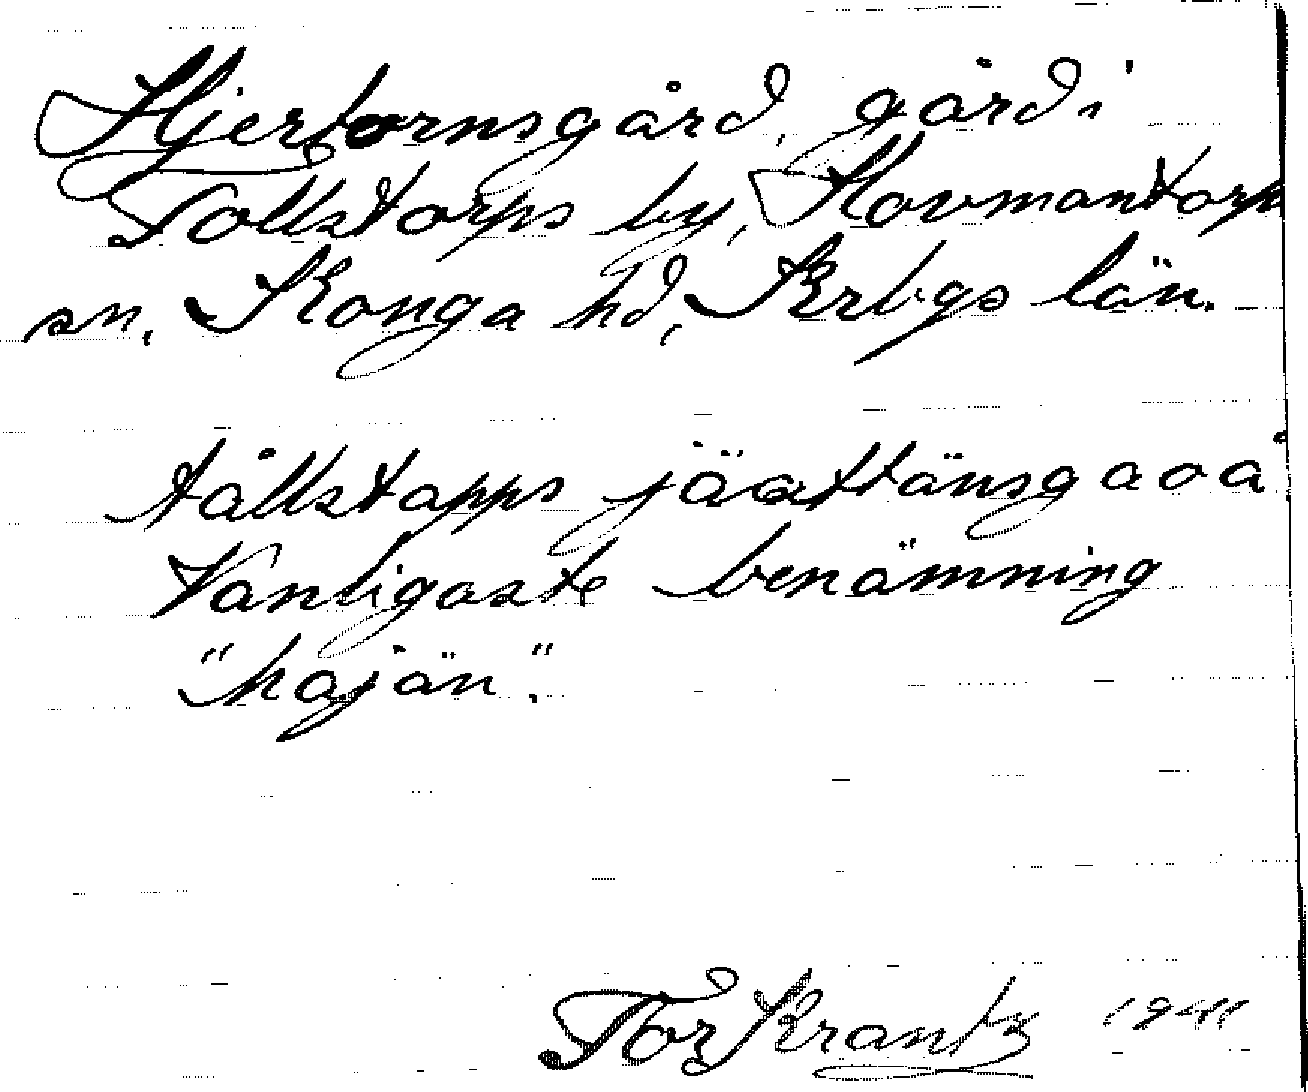 Hjertornsgård, gård i
Tollstorps by, Hovmantorps
sn, Konga hd, Krbgs län.
tållstapps jäattänsgaoå
Vanligaste benämning
"hajän".
Tor Krantz 1941